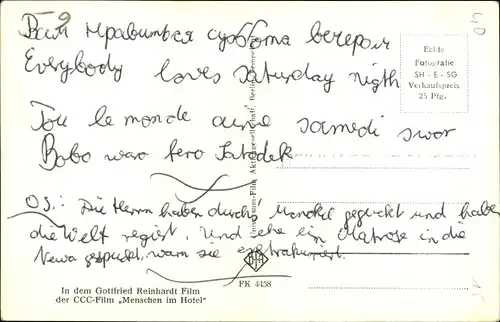 Вам нравитса суббота вечером
Everybody loves saturday nigth
Tou le monde aime samedi swor
Bobo waro fero Satodek
OS.: Die Herrn haben durchs Monokel geguckt und haben
die Welt regiert. Und ehe ein Matrose in die
Newa gespuckt, warn sie
Echte
Fotografie
SH - E - SG
Verkaufspreis
25 Pfg.
UFA
In dem Gottfried Reinhardt Film
der CCC-Film „Menschen im Hotel"
FK 4458